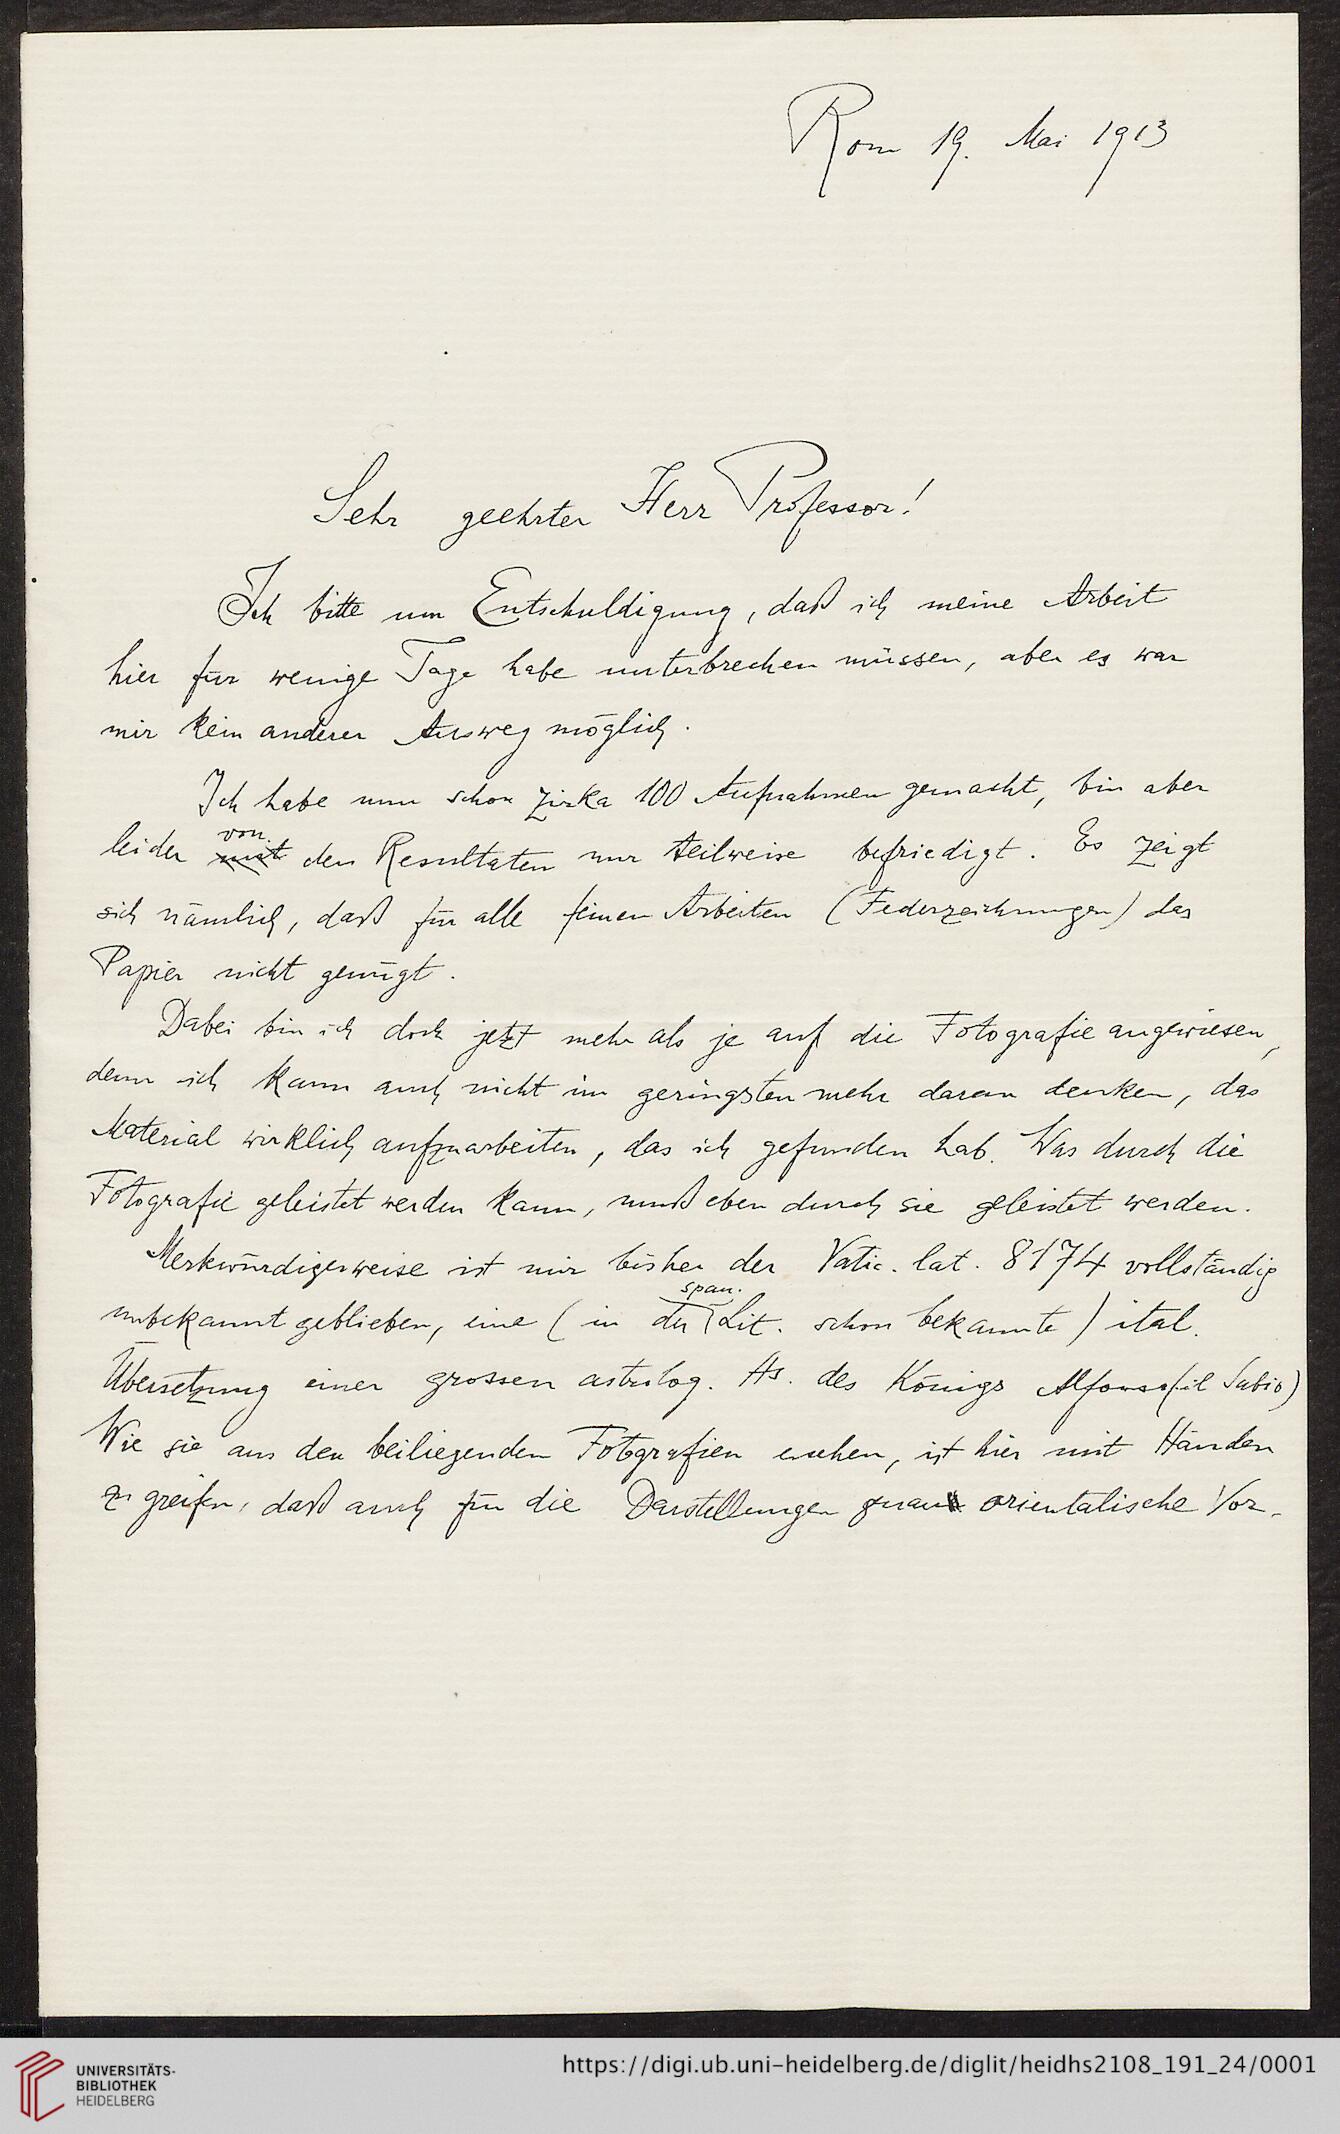 Rom 19. Mai 1913
Sehr geehrter Herr Professor!
Ich bitte um Entschuldigung, daß ich meine Arbeit
hier für wenige Tage habe unterbrechen müssen, aber es war
mir kein anderer Ausweg möglich.
Ich habe nun schon zirka 100 Aufnahmen gemacht, bin aber
leider mit von den Resultaten nur teilweise befriedigt. Es zeigt
sich nämlich, daß für alle feinen Arbeiten (Federzeichnungen) das
Papier nicht genügt.
Dabei bin ich doch jetzt mehr als je auf die Fotografie angewiesen,
denn ich kann auch nicht im geringsten mehr daran denken, das
Material wirklich aufzuarbeiten, das ich gefunden hab. Was durch die
Fotografie geleistet werden kann, muß eben durch sie geleistet werden.
Merkwürdigerweise ist mir bisher der Vatic. lat. 8174 vollständig
unbekannt geblieben, eine (in der span. Lit. schon bekannte) ital.
Übersetzung einer grossen astrolog. Hs. des Königs Alfonso (il Sabio)
Wie sie aus den beiliegenden Fotografien ersehen, ist hier mit Händen
zu greifen, daß auch für die Darstellungen genau orientalische Vor-
UNIVERSITÄTS-
BIBLIOTHEK
HEIDELBERG
https://digi.ub.uni-heidelberg.de/diglit/heidhs2108_191_24/0001